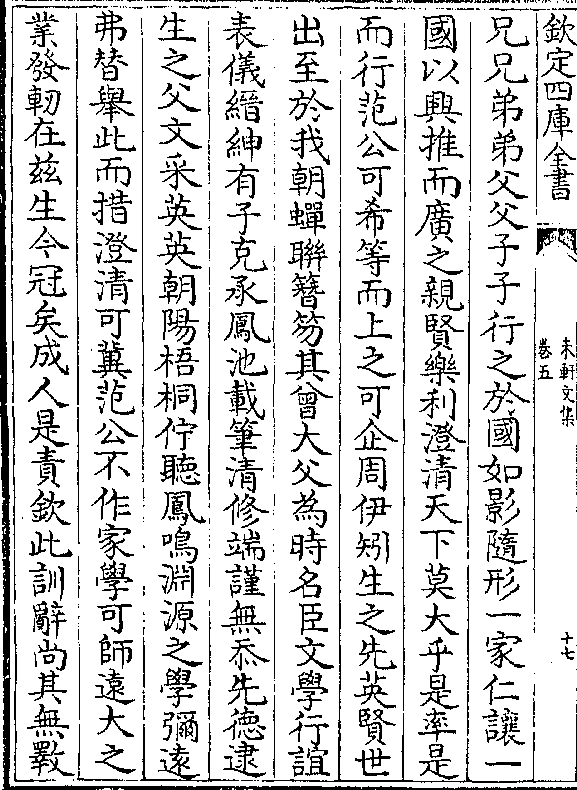 欽定四庫全書
未軒文集
卷五
十七
兄兄弟弟父父子子行之於國如影隨形一家仁讓一
國以興推而廣之親賢樂利澄清天下莫大乎是率是
而行范公可希等而上之可企周伊矧生之先英賢世
出至於我朝蟬聯簪笏其曾大父為時名臣文學行誼
表儀縉紳有子克承鳳池載筆清修端謹無忝先德逮
生之父文采英英朝陽梧桐佇聽鳳鳴淵源之學彌遠
弗替舉此而措澄清可冀范公不作家學可師遠大之
業發軔在兹生今冠矣成人是責欽此訓辭尚其無斁